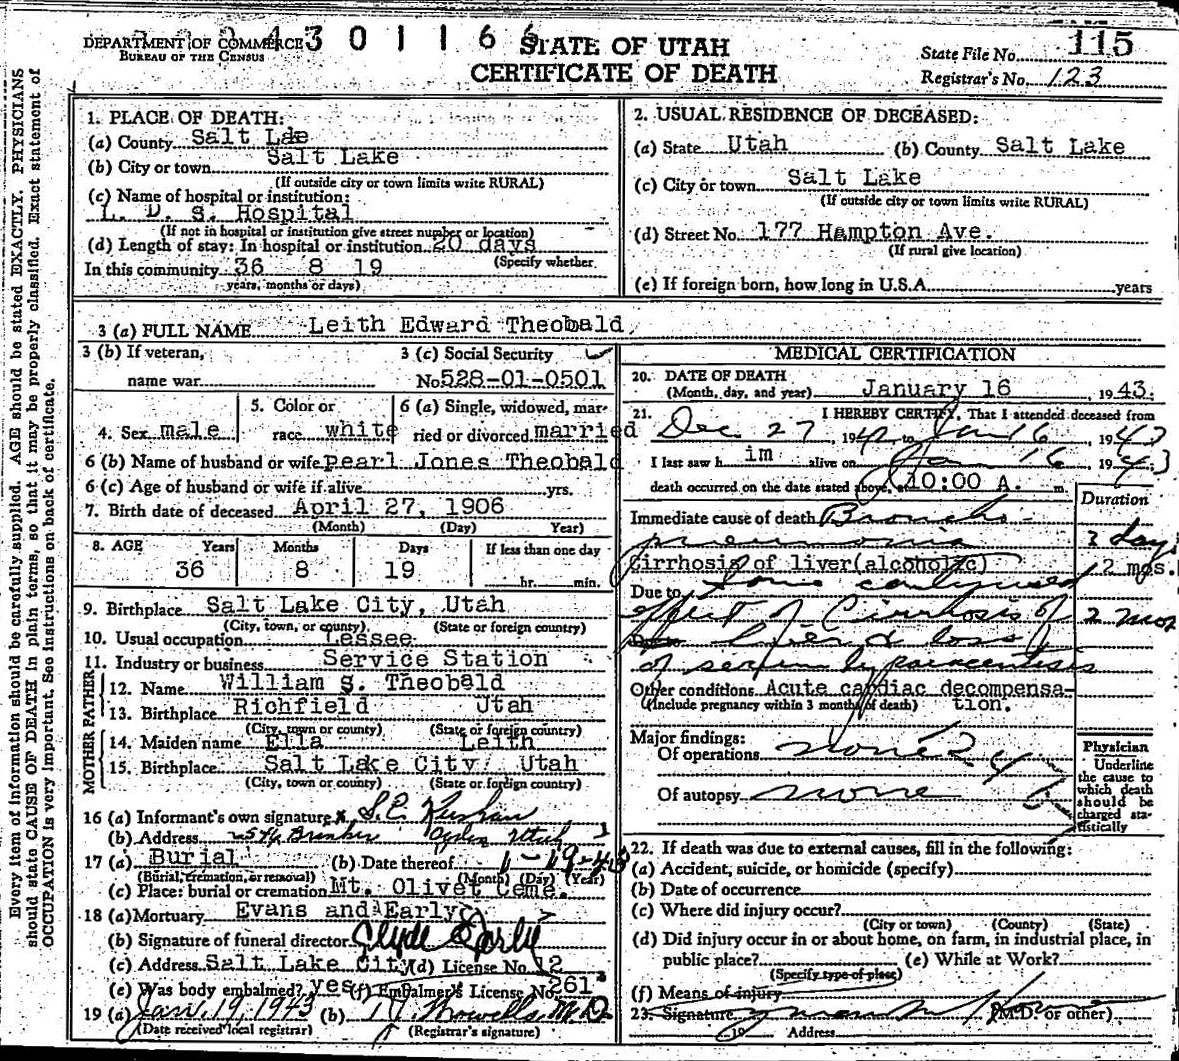 DEPARTMENT OF COMMERCE
BUREAU OF THE CENSUS
4 3 0 1 1 6
STATE OF UTAH
CERTIFICATE OF DEATH
State File No. 115
Registrar's No. 123
Every item of information should be carefully supplied. AGE should be stated EXACTLY. PHYSICIANS
should state CAUSE OF DEATH in plain terms, so that it may be properly classified. Exact statement of
OCCUPATION is very important. See instructions on back of certificate.
1. PLACE OF DEATH:
(a) County Salt Lke
(b) City or town Salt Lake
(If outside city or town limits write RURAL)
(c) Name of hospital or institution:
L. D. S. Hospital
(If not in hospital or institution give street number or location)
(d) Length of stay: In hospital or institution 20 days
(Specify whether
In this community 36 8 19
years, months or days)
2. USUAL RESIDENCE OF DECEASED:
(a) State Utah (b) County Salt Lake
(c) City or town Salt Lake
(If outside city or town limits write RURAL)
(d) Street No. 177 Hampton Ave.
(If rural give location)
(e) If foreign born, how long in U.S.A. years
3 (a) FULL NAME Leith Edward Theobald
3 (b) If veteran,
name war
3 (c) Social Security
No. 528-01-0501
4. Sex male
5. Color or
race white
6 (a) Single, widowed, mar-
ried or divorced married
6 (b) Name of husband or wife Pearl Jones Theobald
6 (c) Age of husband or wife if alive yrs.
7. Birth date of deceased April 27, 1906
(Month) (Day) Year)
8. AGE Years Months Days If less than one day
36 8 19 hr. min.
9. Birthplace Salt Lake City, Utah
(City, town, or county) (State or foreign country)
10. Usual occupation Lessee
11. Industry or business Service Station
FATHER
12. Name William S. Theobald
13. Birthplace Richfield Utah
(City, town or county) (State or foreign country)
MOTHER
14. Maiden name Ella Leith
15. Birthplace Salt Lake City Utah
(City, town or county) (State or foreign country)
16 (a) Informant's own signature
(b) Address Ogden Utah
17 (a) Burial (b) Date thereof 1-19-43
(Burial, cremation, or removal) (Month) (Day) (Year)
(c) Place: burial or cremation Mt. Olivet Ceme.
18 (a) Mortuary Evans and Early
(b) Signature of funeral director Clyde Early
(c) Address Salt Lake City (d) License No. 12
(e) Was body embalmed? yes (f) Embalmer's License No. 261
19 (a) Jan. 19, 1943 (b) M.D.
(Date received local registrar) (Registrar's signature)
MEDICAL CERTIFICATION
20. DATE OF DEATH
(Month, day, and year) January 16 1943.
21. I HEREBY CERTIFY, That I attended deceased from
Dec 27, 1942 to Jan 16, 1943
I last saw h im alive on Jan 16 1943
death occurred on the date stated above, at 10:00 A. m.
Duration
Immediate cause of death Broncho-
pneumonia days
Cirrhosis of liver(alcoholic) 2 mos.
Due to continued
effect of Cirrhosis of 2 mos
liver & loss
of serum by paracentesis
Other conditions Acute cardiac decompensa-
(Include pregnancy within 3 months of death) tion.
Major findings:
Of operations none
Of autopsy none
Physician
Underline
the cause to
which death
should be
charged sta-
tistically
22. If death was due to external causes, fill in the following:
(a) Accident, suicide, or homicide (specify)
(b) Date of occurrence
(c) Where did injury occur?
(City or town) (County) (State)
(d) Did injury occur in or about home, on farm, in industrial place, in
public place? (e) While at Work?
(Specify type of place)
(f) Means of injury
23. Signature (M.D. or other)
19 Address